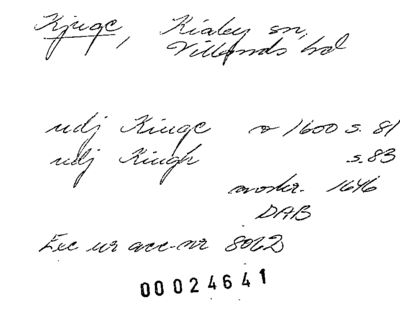 Kjuge, Kiaby sn,
Villands hd
udj Kiuge r 1600 s. 81
udj Kiugh s. 83
1646
DAB
Exc ur acc-nr 8062
00024641